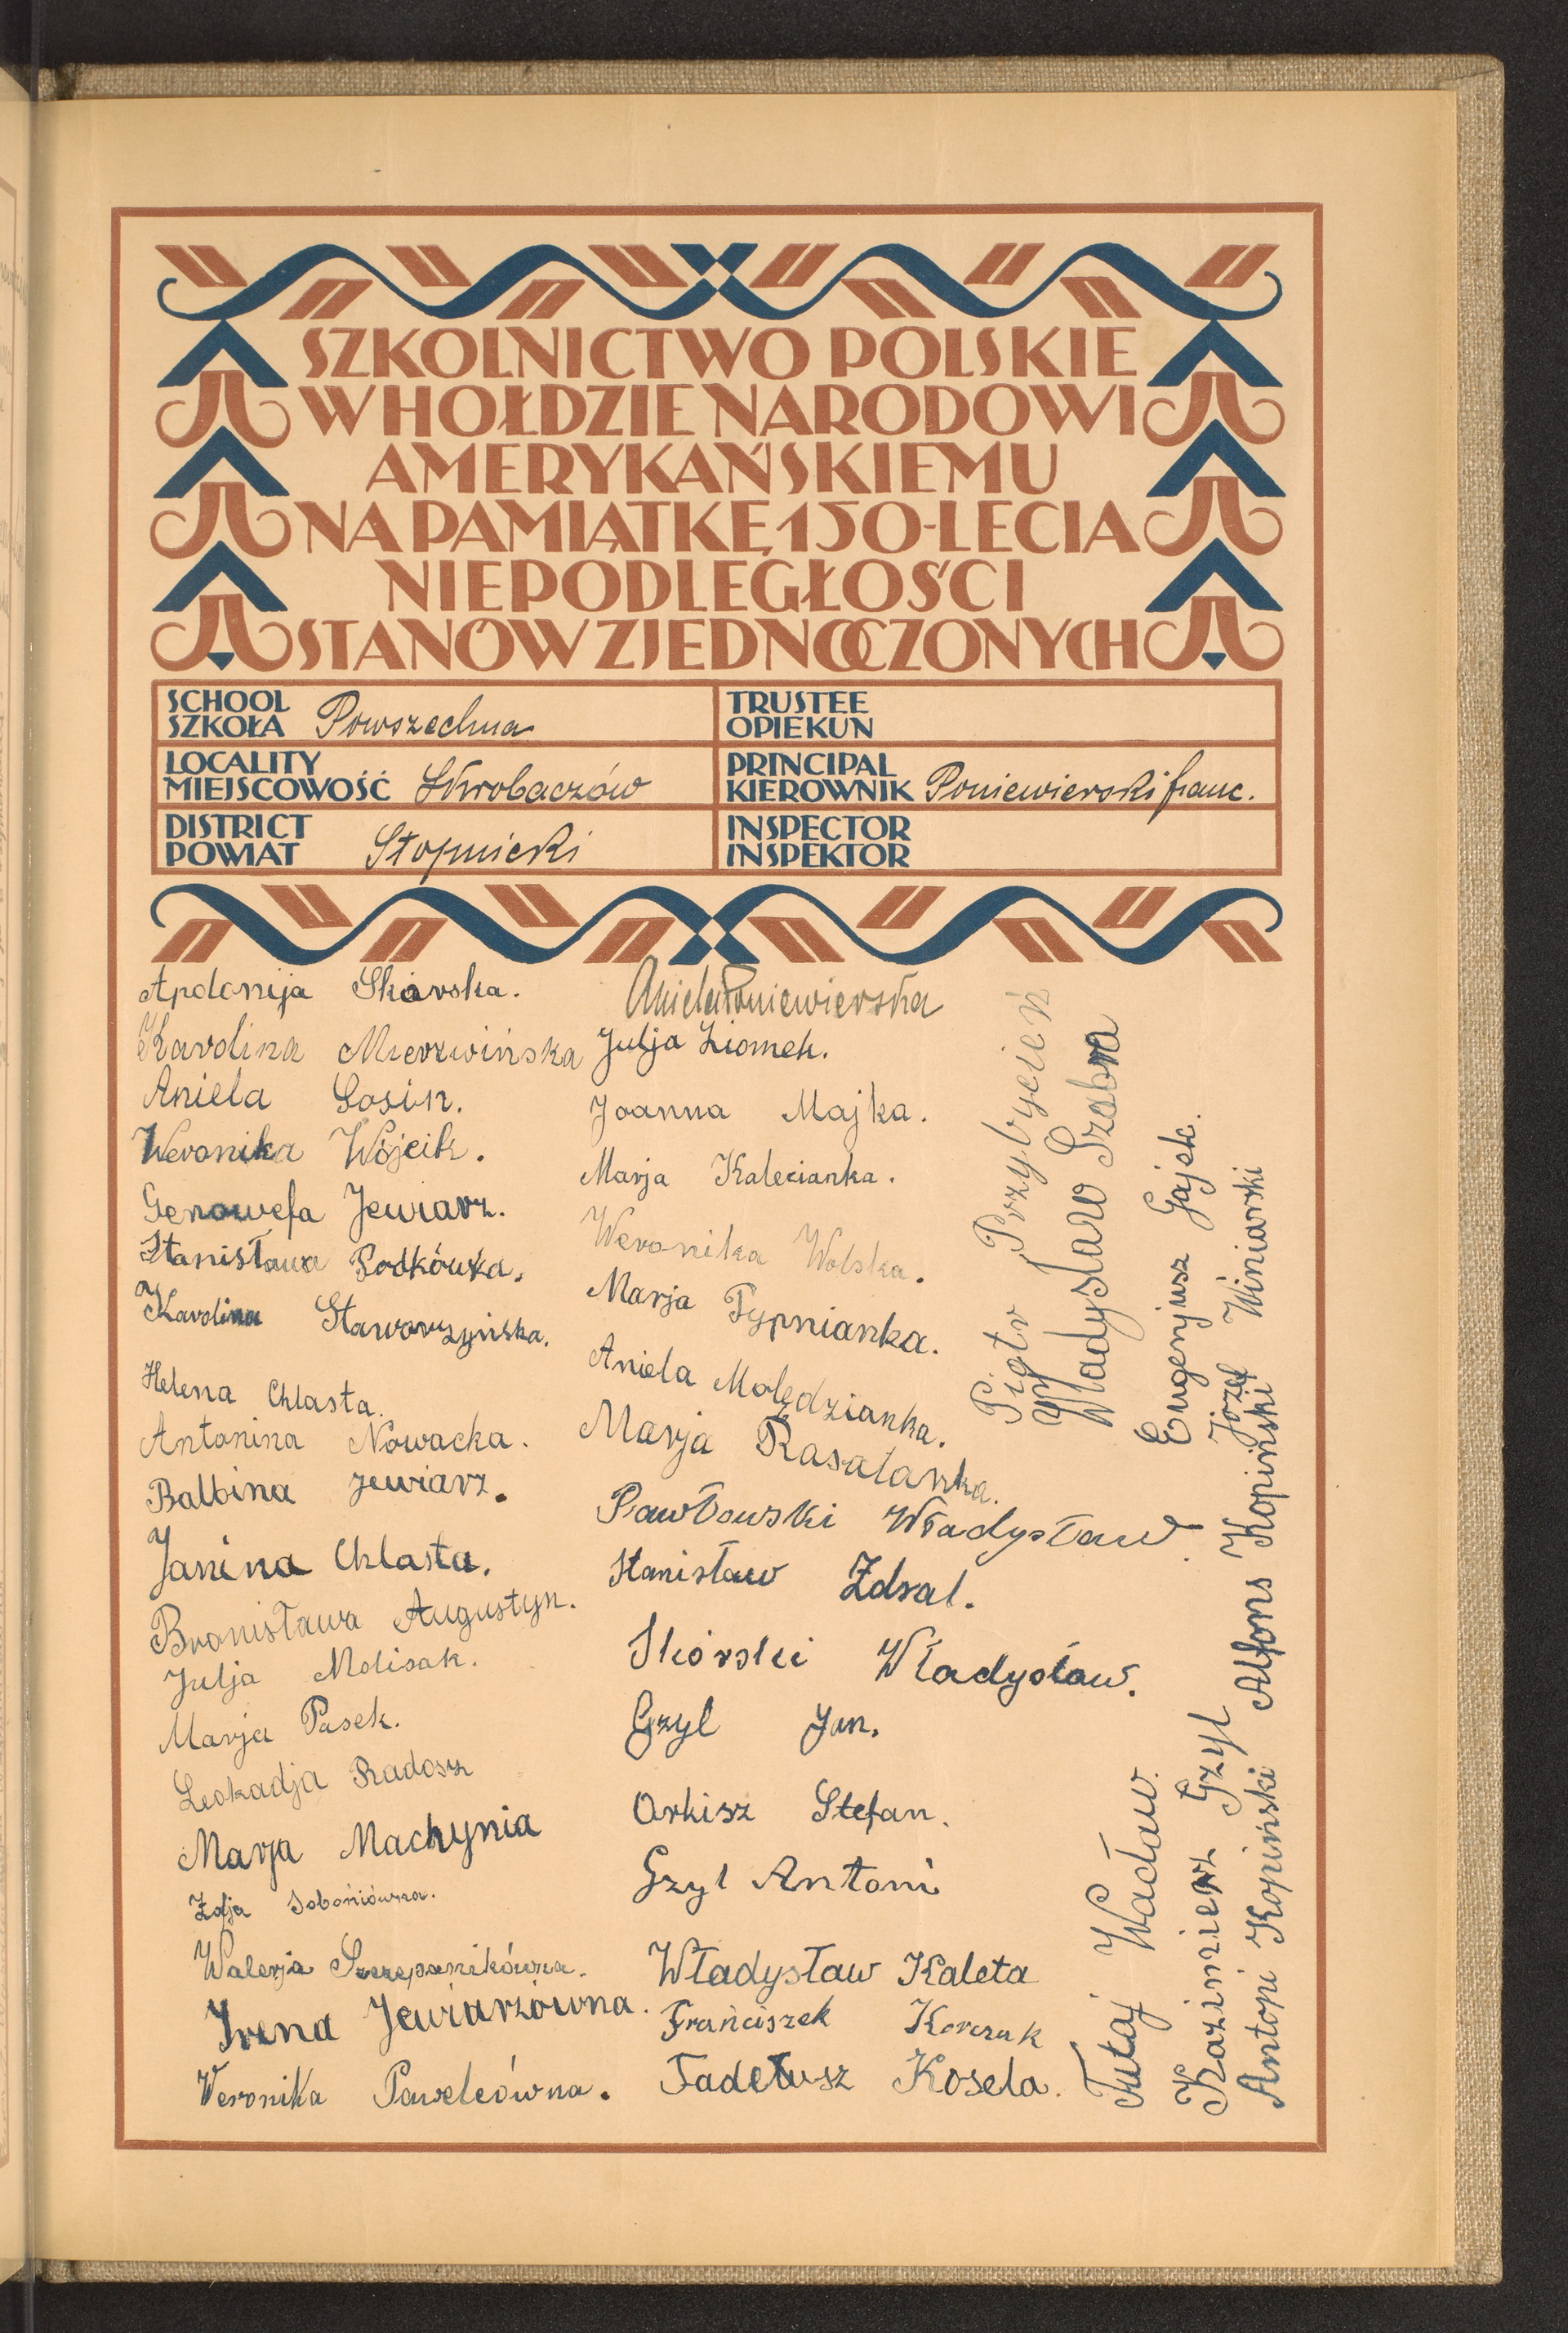 SZKOLNICTWO POLSKIE
W HOŁDZIE NARODOWI
AMERYKAŃSKIEMU
NA PAMIĄTKĘ 150-LECIA
NIEPODLEGŁOŚCI
STANÓW ZJEDNOCZONYCH
SCHOOL
SZKOŁA Powszechna
LOCALITY
MIEJSCOWOŚĆ Skrobaczów
DISTRICT
POWIAT Stopnicki
TRUSTEE
OPIEKUN
PRINCIPAL
KIEROWNIK Poniewierski franc.
INSPECTOR
INSPEKTOR
Apolonija Skórska.
Karolina Mierzwińska
Aniela Gosin.
Weronika Wójcik.
Genowefa Jewiarz.
Stanisława Podkówka.
Karolina Staworzyńska.
Helena Chlasta.
Antonina Nowacka.
Balbina Jewiarz.
Janina Chlasta.
Bronisława Augustyn.
Julja Molisak.
Marja Pasek.
Leokadja Radosz
Marja Machynia
Zofja Soboniówna.
Walerja Szczepanikówna.
Irena Jewiarzówna.
Weronika Pawelcówna.
Aniela Poniewierska
Julja Ziomek.
Joanna Majka.
Marja Kalecianka.
Weronika Wolska.
Marja Fypnianka.
Aniela Molędzianka.
Marja Rasalanka.
Pawłowski Władysław
Stanisław Zdral.
Skórski Władysław.
Gzyl Jan.
Arkisz Stefan.
Gzyl Antoni
Władysław Kaleta
Franciszek Korczak
Tadeusz Kosela.
Piotr Przybycień
Władysław Szobra
Eugenjusz Gajek.
Józef Winiarski
Futaj Wacław.
Kazimierz Gzyl
Alfons Kopiński
Antoni Kopiński